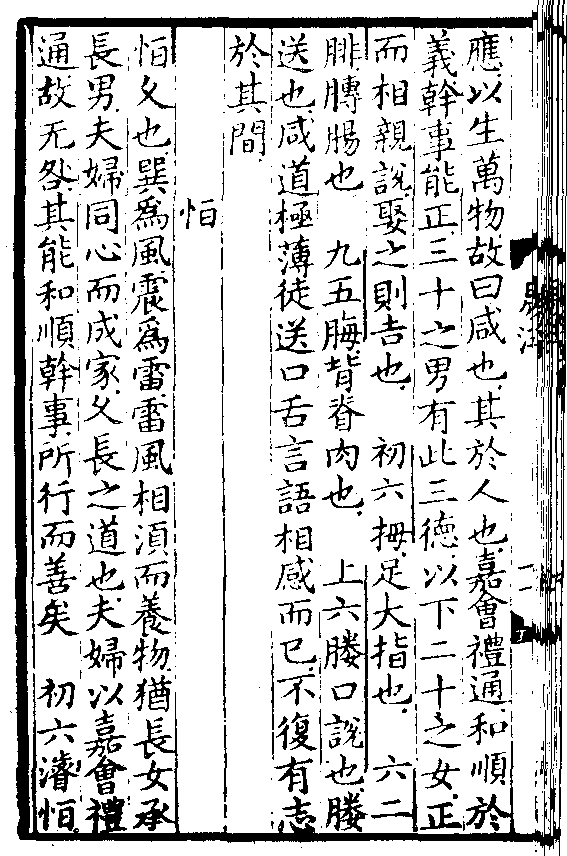 應以生萬物故曰咸也其於人也嘉會禮通和順於
義幹事能正三十之男有此三德以下二十之女正
而相親說娶之則吉也　初六拇足大指也　六二
腓膞腸也　九五脢背脊肉也　上六媵口說也媵
送也咸道極薄徒送口舌言語相感而已不復有志
於其間
恒
恒久也巽爲風震爲雷雷風相須而養物猶長女承
長男夫婦同心而成家久長之道也夫婦以嘉會禮
通故无咎其能和順幹事所行而善矣　初六濬恒